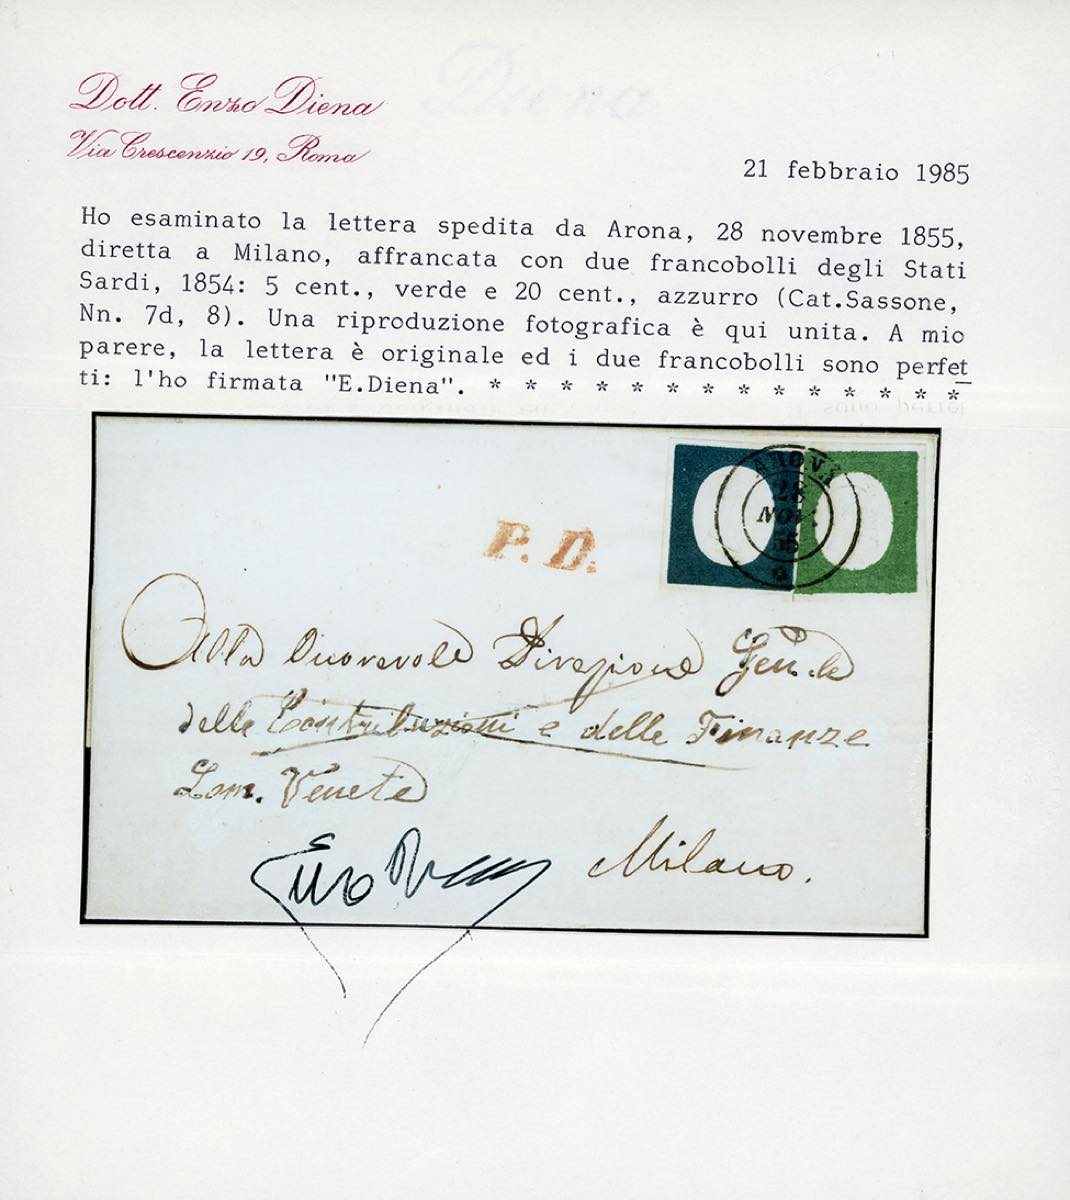 Dott. Enzo Diena
Via Crescenzio 19, Roma
21 febbraio 1985
Ho esaminato la lettera spedita da Arona, 28 novembre 1855,
diretta a Milano, affrancata con due francobolli degli Stati
Sardi, 1854: 5 cent., verde e 20 cent., azzurro (Cat.Sassone,
Nn. 7d, 8). Una riproduzione fotografica è qui unita. A mio
parere, la lettera è originale ed i due francobolli sono perfet
ti: l'ho firmata "E.Diena". * * * * * * * * * * * * * *
ARONA
28
NOV.
55
P. D.
Alla Onorevole Direzione Gen.le
delle Contribuzioni e delle Finanze
Lom. Venete
Milano.
Enzo Diena